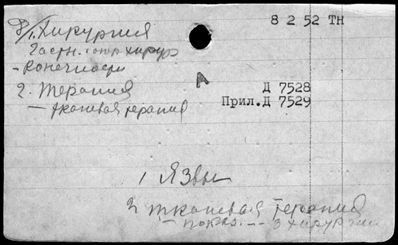 8 2 52 ТН
Хирургия
- Конечности
А
Д 7528
2. Терапия
Прил.Д 7529
- тканевая терапия
1 Язвы
2 тканевая терапия
- показ. - в хирургии